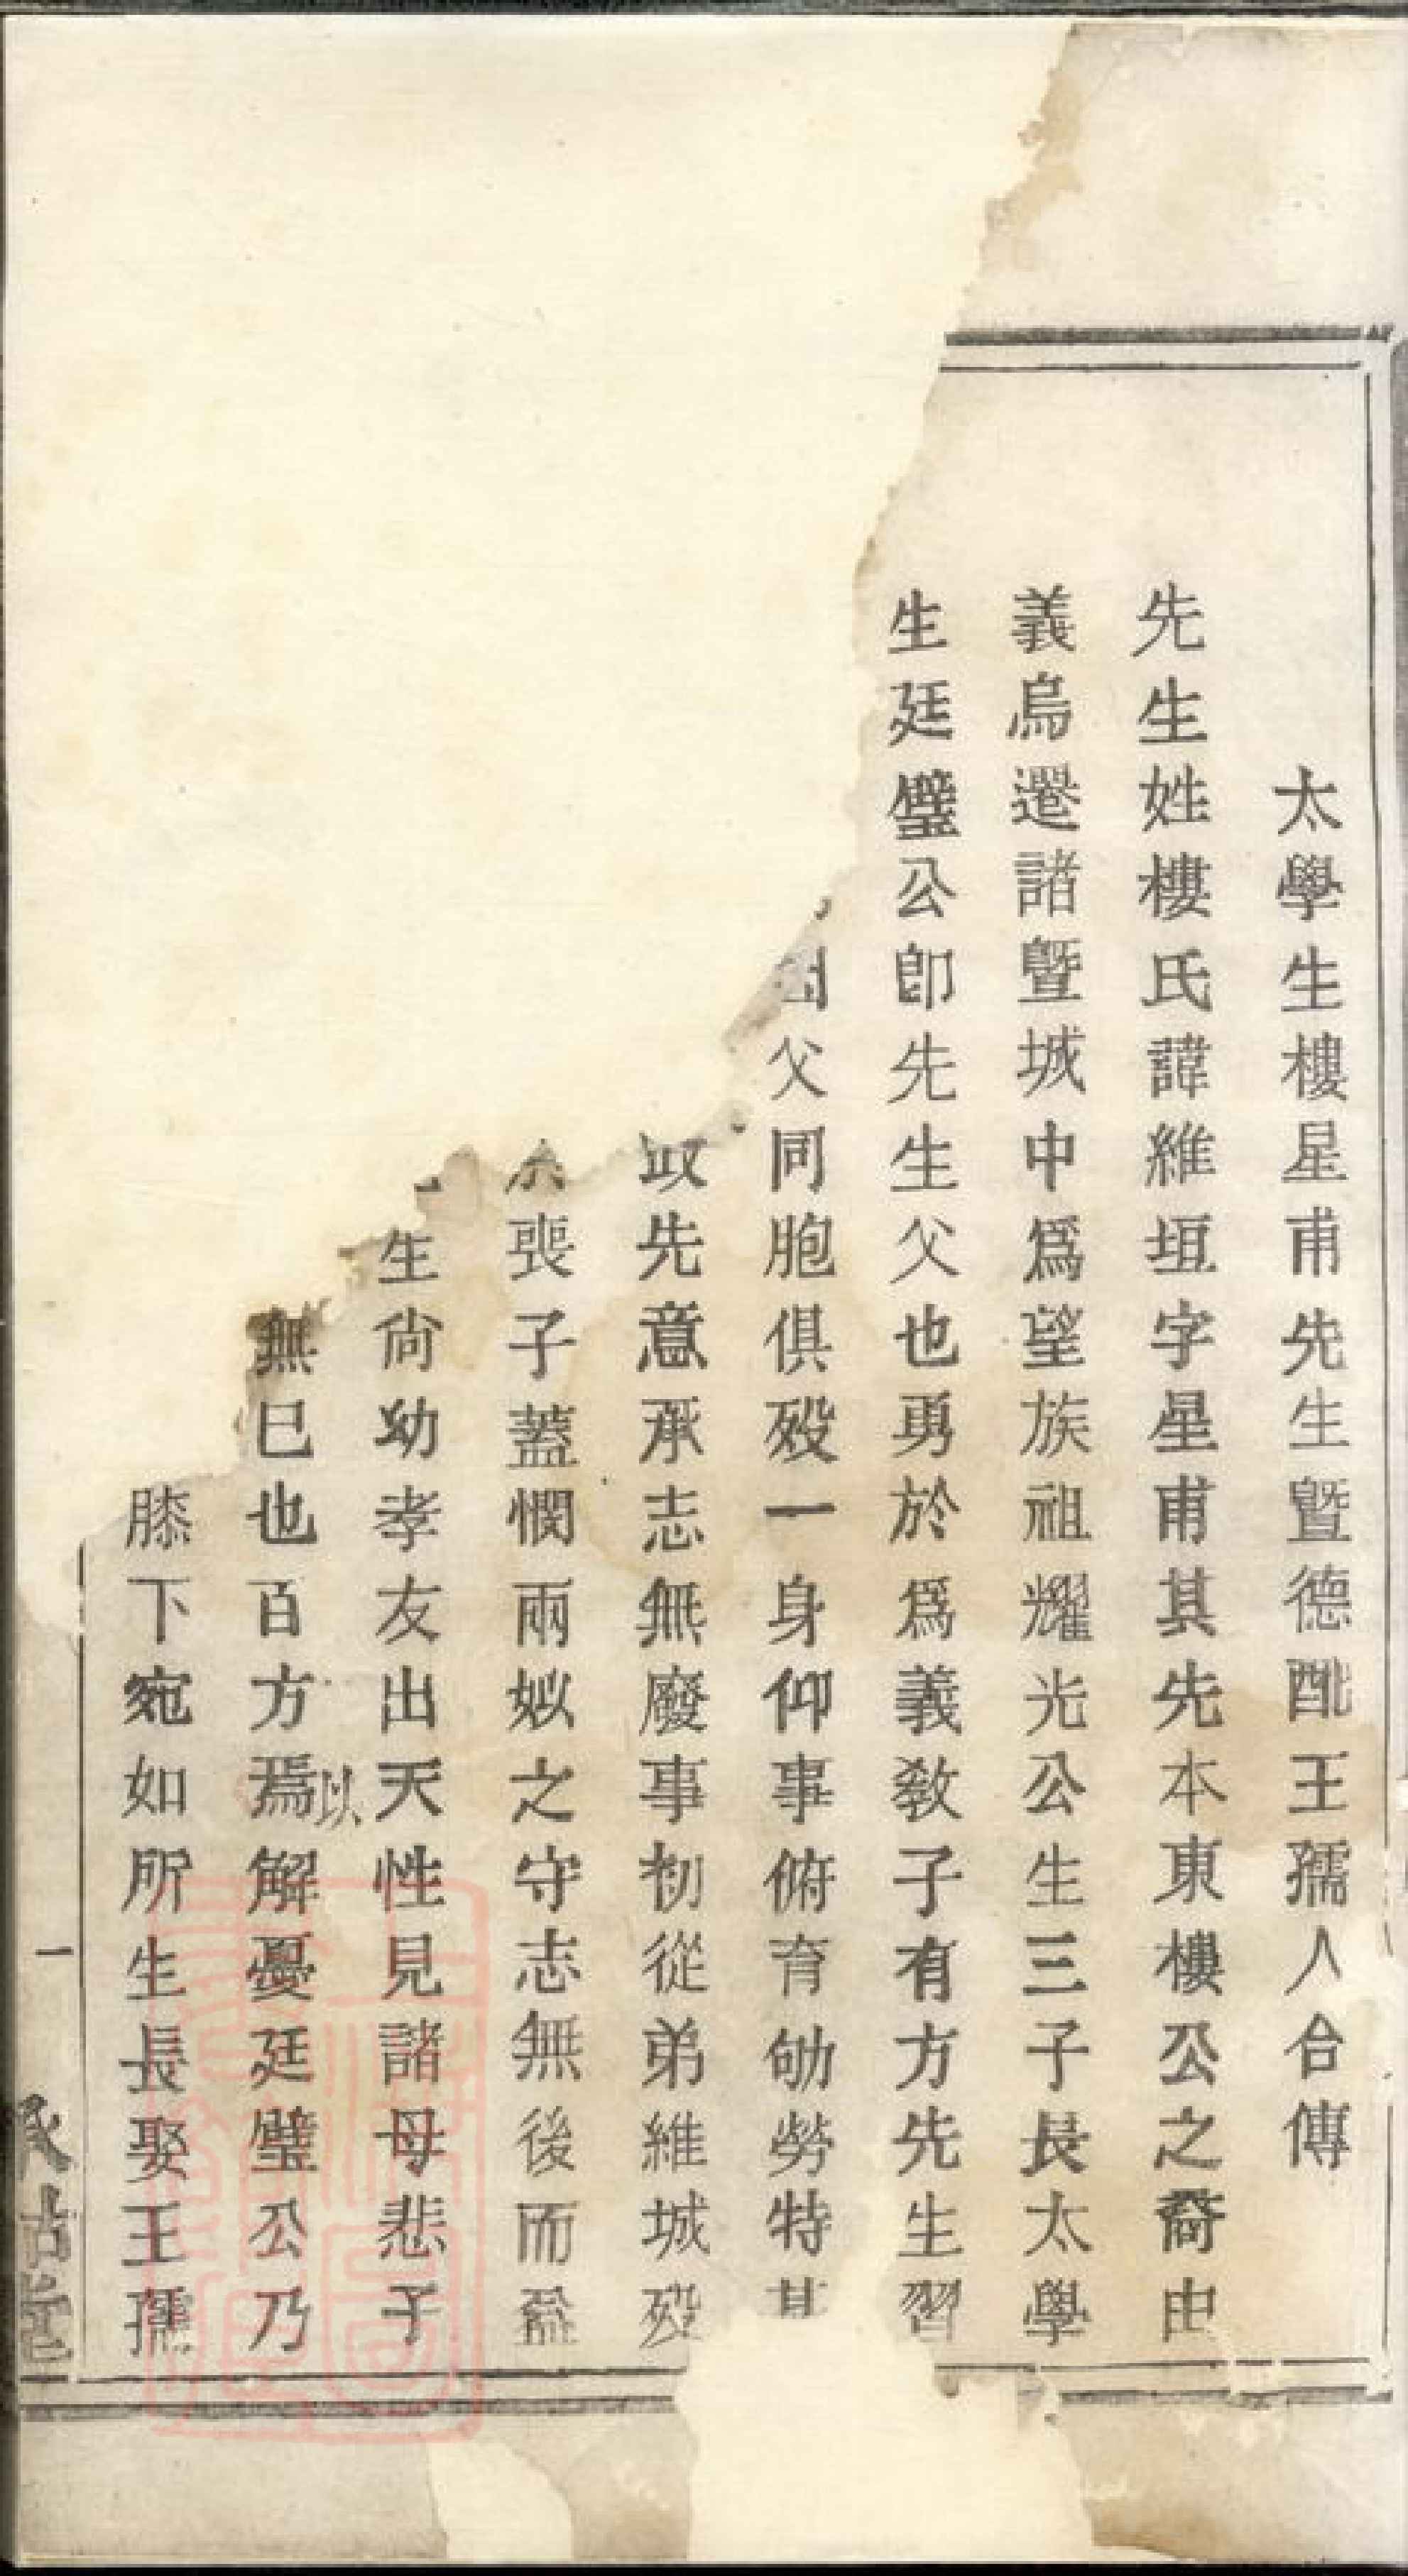 太學生樓星甫先生暨德配王孺人合傳
先生姓樓氏諱維垣字星甫其先本東樓公之裔由
義烏遷諸暨城中爲望族祖耀光公生三子長太學
生廷璧公卽先生父也勇於爲義敎子有方先生習
父同胞俱歿一身仰事俯育劬勞特甚
先意承志無廢事初從弟維城歿
喪子蓋憫兩姒之守志無後而
生尙幼孝友出天性見諸母悲予
無已也百方焉以解憂廷璧公乃
膝下宛如所生長娶王孺
一